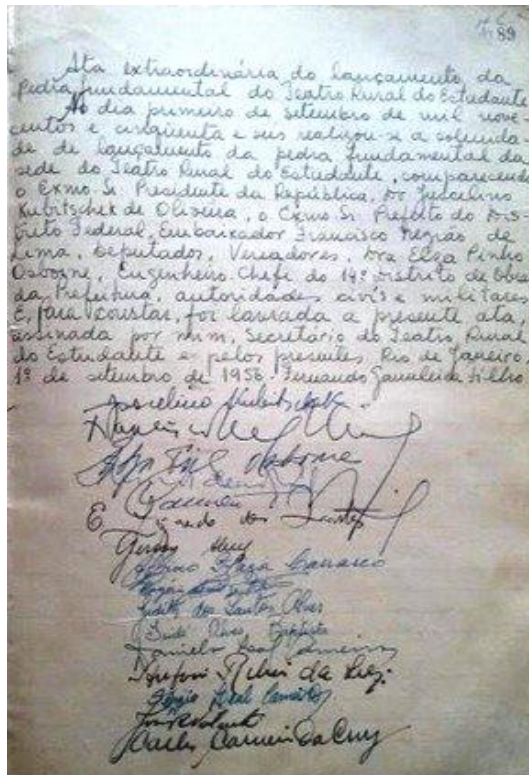 89
Ata extraordinária do lançamento da
Pedra fundamental do Teatro Rural do Estudante
No dia primeiro de Setembro de mil nove
centos e cinqüenta e seis realizou-se a solenida-
de de lançamento da pedra fundamental da
sede do Teatro Rural do Estudante, comparecendo
o Exmo. Sr. Presidente da República, Dr. Juscelino
Kubitschek de Oliveira, o Exmo. Sr. Prefeito do Dis-
trito Federal, Embaixador Francisco Negrão de
Lima, Deputados, Vereadores, Dra Elza Pinho
Osborne, Engenheiro. Chefe do 14º Distrito de Obras
da Prefeitura, autoridades civis e militares
E, para constar, foi lavrada a presente ata,
assinada por mim, Secretário do Teatro Rural
do Estudante e pelos presentes, Rio de Janeiro
1º de setembro de 1956. Fernando Filho
Juscelino Kubitschek
Osborne
dos Santos
Carrasco
Judith dos Santos Alves
Baptista
Daniela Leal
Rubei da
Sérgio Leal Carneiro
Carlos Carneiro da Cruz